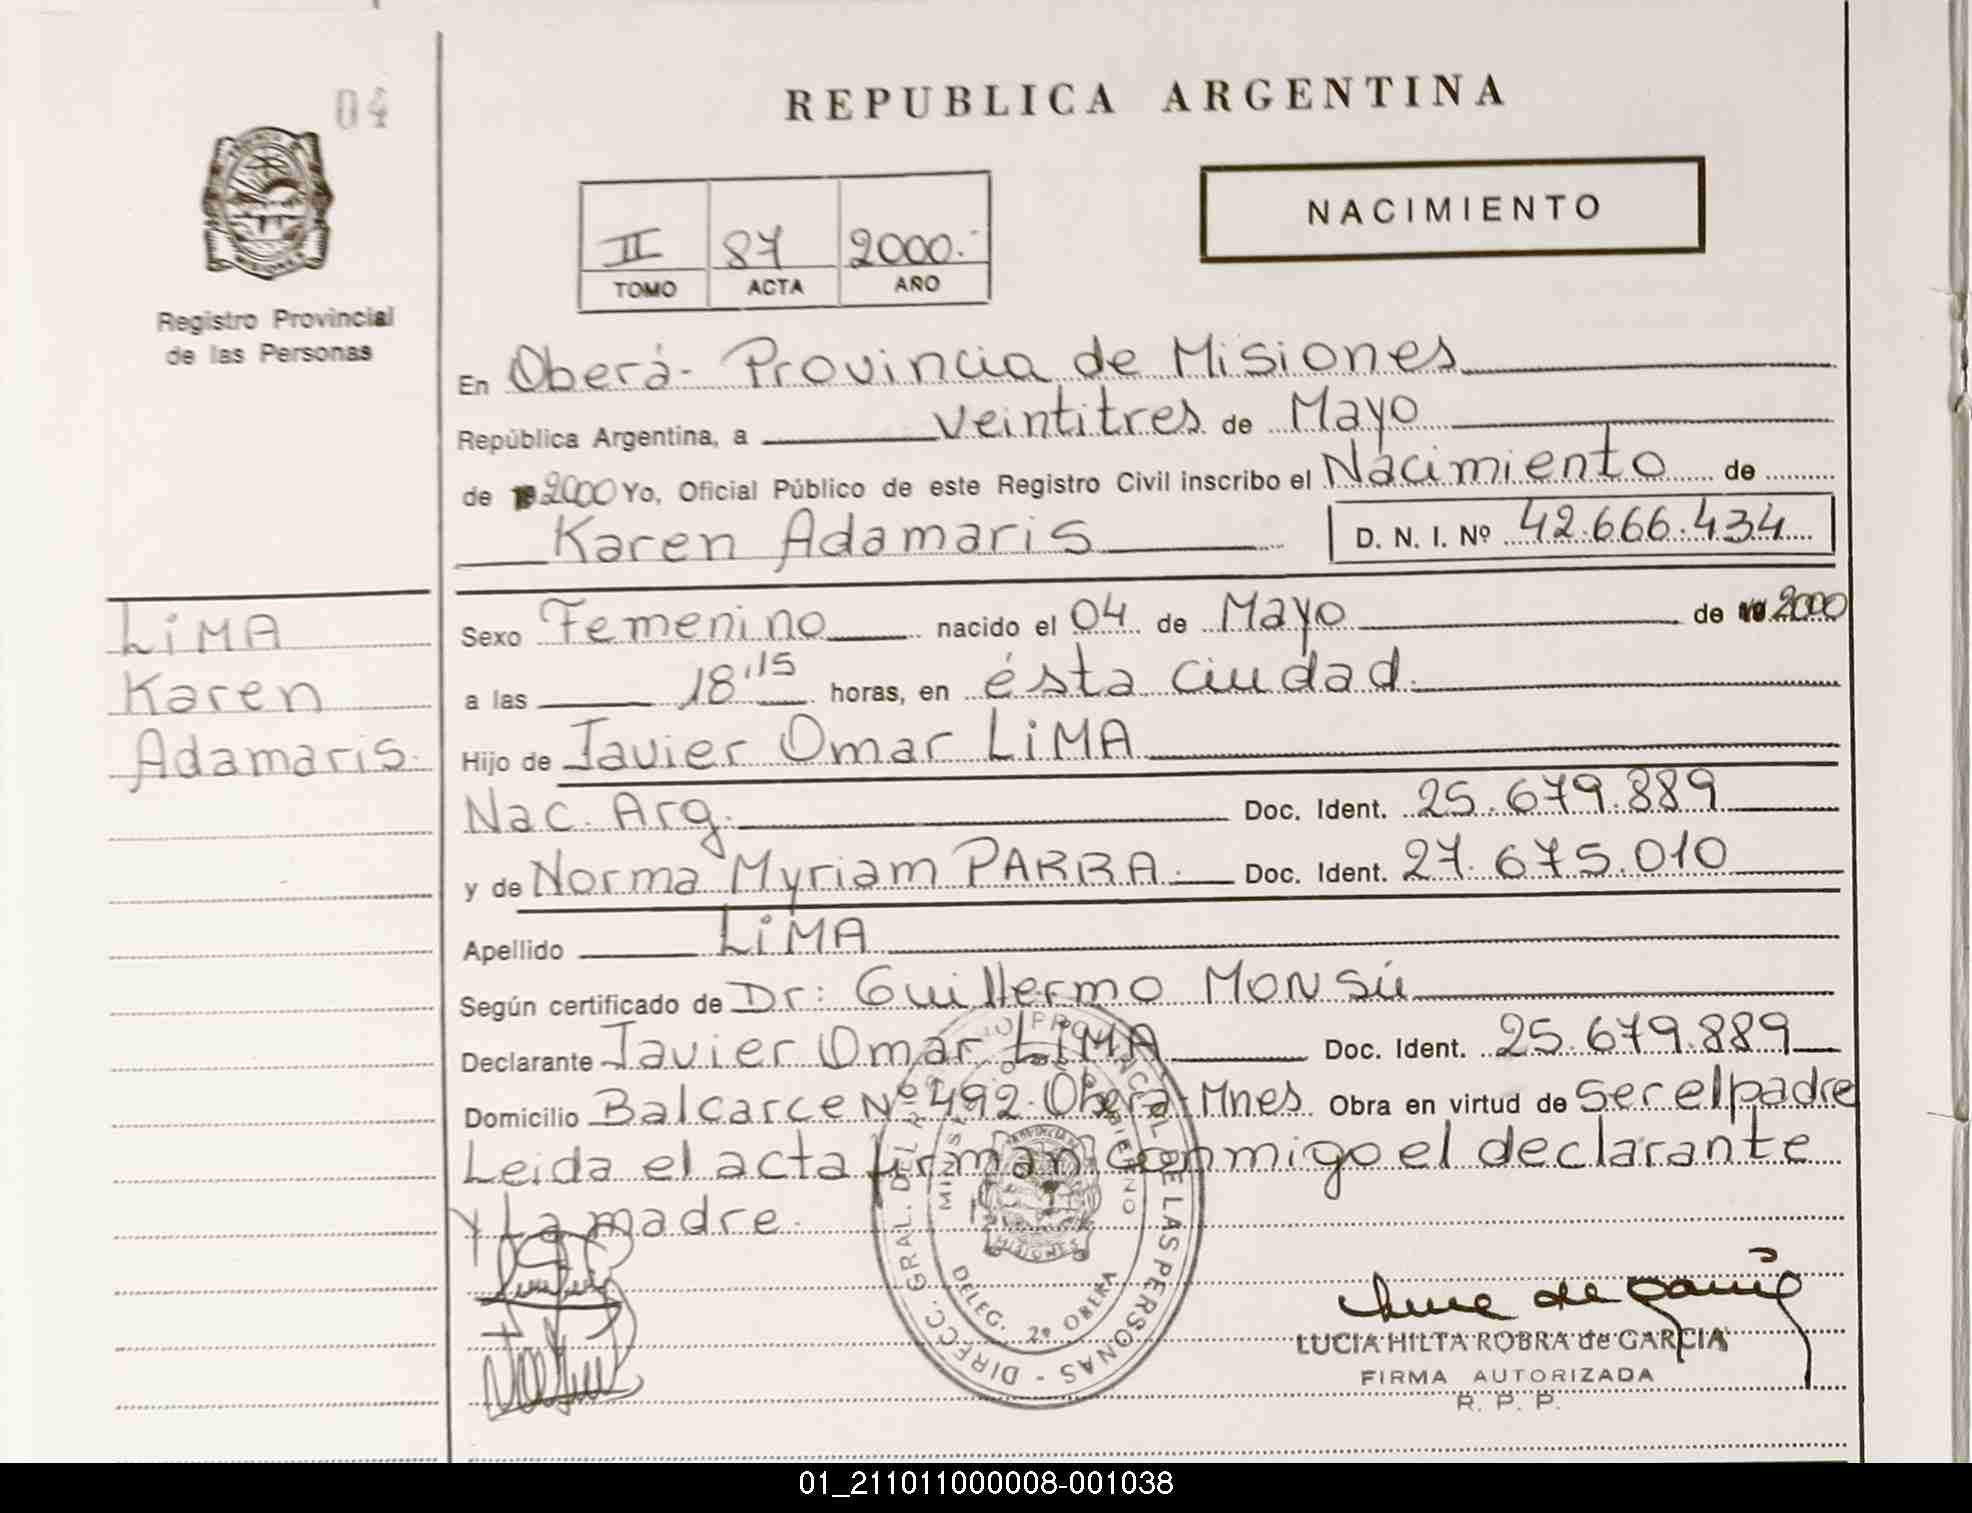 04
REPUBLICA ARGENTINA
NACIMIENTO
II 87 2000.-
TOMO ACTA AÑO
MISIONES
Registro Provincial
de las Personas
En Oberá- Provincia de Misiones
República Argentina, a veintitres de Mayo
de 2000 Yo, Oficial Público de este Registro Civil inscribo el Nacimiento de
Karen Adamaris D. N. I. Nº 42.666.434
LiMA
Karen
Adamaris.
Sexo Femenino nacido el 04 de Mayo de 2000
a las 18'15 horas, en ésta ciudad.
Hijo de Javier Omar LiMA
Nac. Arg. Doc. Ident. 25.679.889
y de Norma Myriam PARRA. Doc. Ident. 27.675.010
Apellido LiMA
Según certificado de Dr: Guillermo MONSú
Declarante Javier Omar LiMA Doc. Ident. 25.679.889
Domicilio Balcarce Nº 492. Oberá-Mnes Obra en virtud de ser el padre
Leida el acta firman conmigo el declarante
y La madre.
DIRECC. GRAL. DEL REGISTRO PROVINCIAL DE LAS PERSONAS -
MINISTERIO DE GOBIERNO
PROVINCIA DE
MISIONES
DELEG. 2º OBERA
LUCIA HILTA ROBRA de GARCIA
FIRMA AUTORIZADA
R. P. P.
01_211011000008-001038